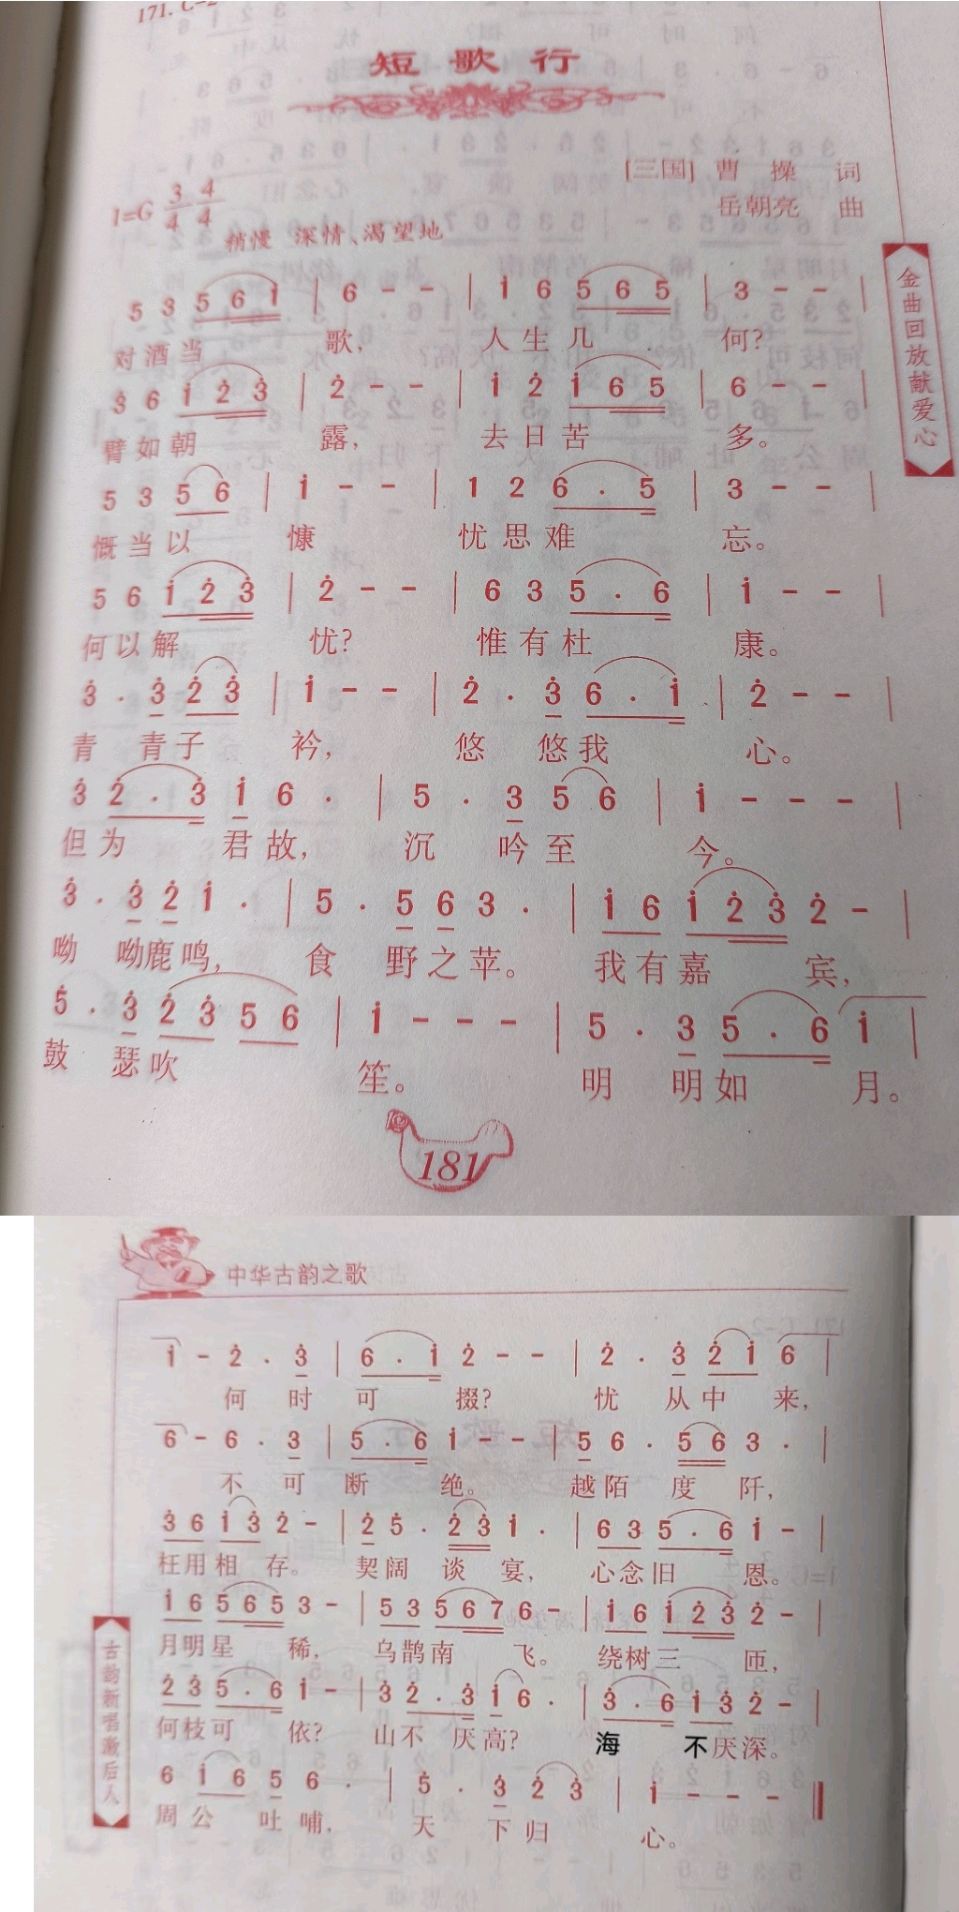 171. C-2
短歌行
[三国] 曹操 词
1=G 3/4 4/4
岳朝亮 曲
稍慢 深情、渴望地
5 3 5 6 i | 6 - - | i 6 5 6 5 | 3 - - |
对酒当 歌, 人生几 何?
3 6 i 2 3 | 2 - - | i 2 i 6 5 | 6 - - |
臂如朝 露, 去日苦 多。
5 3 5 6 | i - - | 1 2 6 . 5 | 3 - - |
慨当以 慷 忧思难 忘。
5 6 i 2 3 | 2 - - | 6 3 5 . 6 | i - - |
何以解 忧? 惟有杜 康。
3 . 3 2 3 | i - - | 2 . 3 6 . i | 2 - - |
青 青子 衿, 悠 悠我 心。
3 2 . 3 i 6 . | 5 . 3 5 6 | i - - - |
但为 君故, 沉 吟至 今。
3 . 3 2 i . | 5 . 5 6 3 . | i 6 i 2 3 2 - |
呦 呦鹿鸣, 食 野之苹。 我有嘉 宾,
5 . 3 2 3 5 6 | i - - - | 5 . 3 5 . 6 i |
鼓 瑟吹 笙。 明 明如 月。
181
金曲回放献爱心
中华古韵之歌
i - 2 . 3 | 6 . i 2 - - | 2 . 3 2 i 6 |
何 时 可 掇? 忧 从中 来,
6 - 6 . 3 | 5 . 6 i - - | 5 6 . 5 6 3 . |
不 可 断 绝。 越陌 度 阡,
3 6 i 3 2 - | 2 5 . 2 3 i . | 6 3 5 . 6 i - |
枉用相 存。 契阔 谈 宴, 心念旧 恩。
i 6 5 6 5 3 - | 5 3 5 6 7 6 - | i 6 i 2 3 2 - |
月明星 稀, 乌鹊南 飞。 绕树三 匝,
2 3 5 . 6 i - | 3 2 . 3 i 6 . | 3 . 6 i 3 2 - |
何枝可 依? 山不 厌高? 海 不厌深。
6 i 6 5 6 . | 5 . 3 2 3 | i - - - ‖
周公 吐哺, 天 下归 心。
古韵新唱激后人